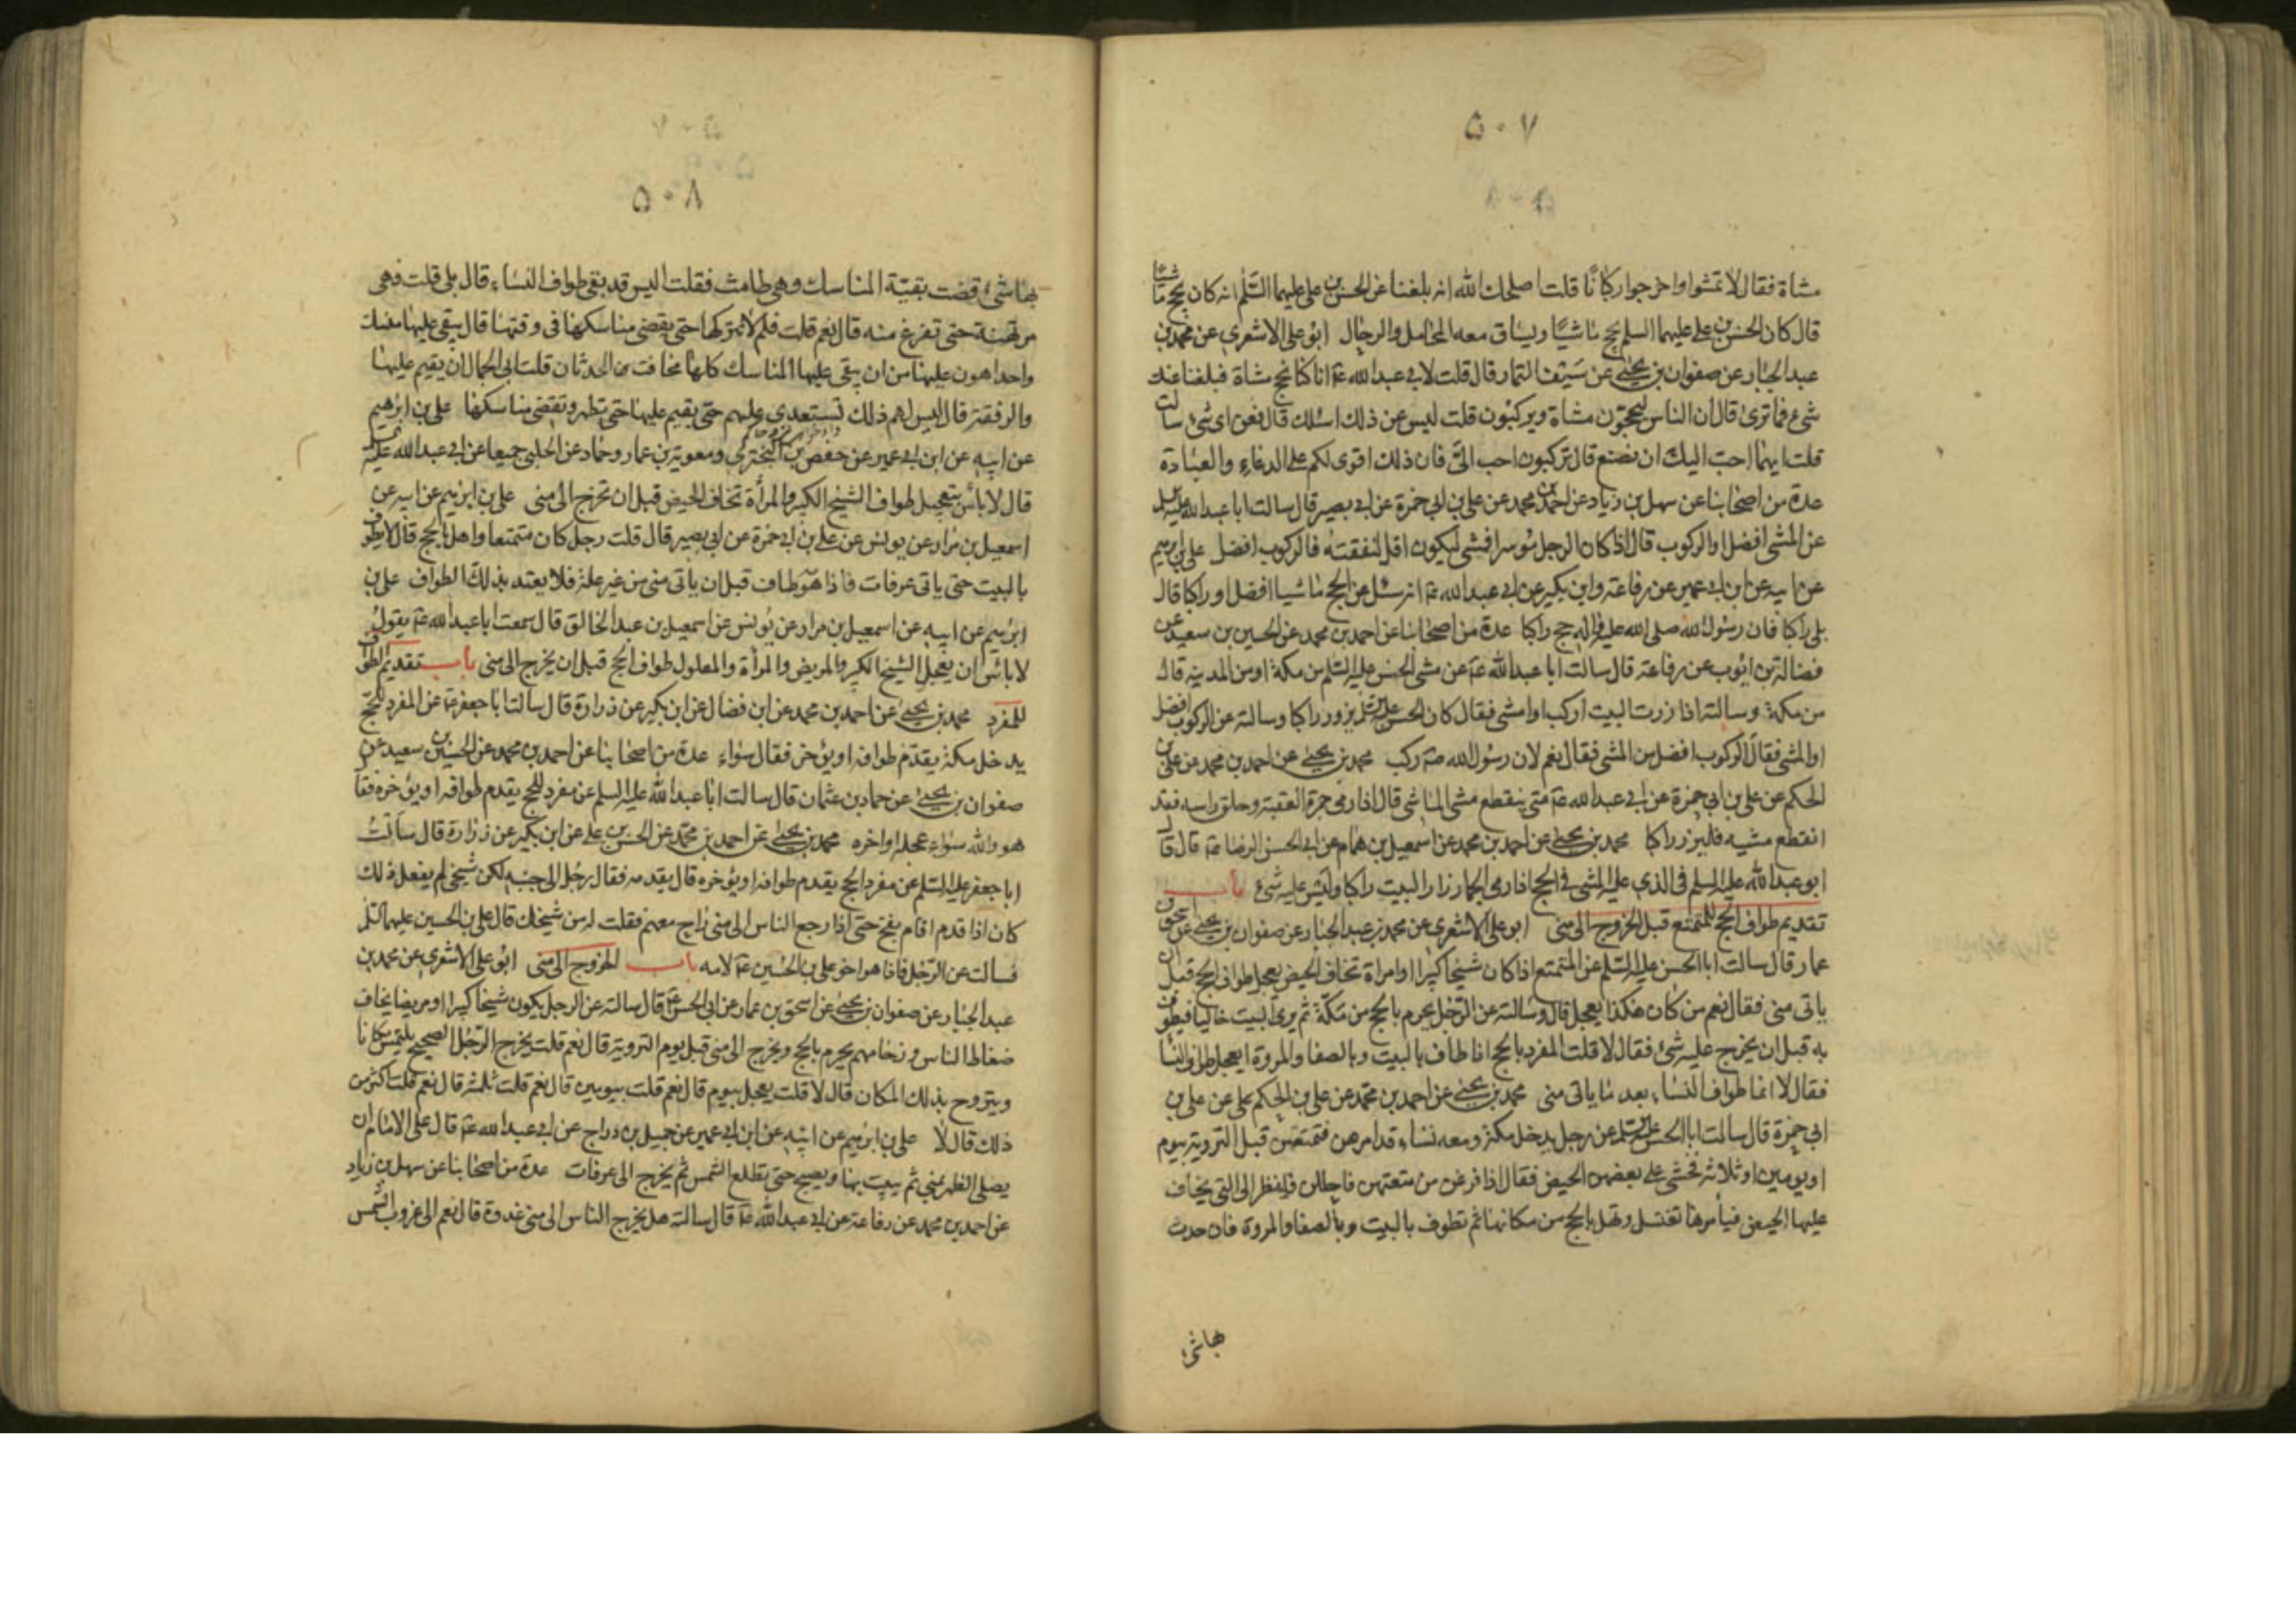 ۵۰۷
مشاة فقال لا تمشوا واخرجوا ركبانا قلت اصلحك الله انه بلغنا عن الحسن بن علي عليهما السلم انه كان يحج ماشيا
قال كان الحسن بن علي عليهما السلم يحج ماشيا ويساق معه المحامل والرحال ابو علي الاشعري عن محمد بن
عبد الجبار عن صفوان بن يحيى عن سيف التمار قال قلت لابي عبد الله ع انا كنا نحج مشاة فبلغنا عنك
شيء فما ترى قال ان الناس ليحجون مشاة ويركبون قلت ليس عن ذلك اسئلك قال فعن اي شيء سالت
قلت ايهما احب اليك ان نصنع قال تركبون احب الي فان ذلك اقوى لكم على الدعاء والعبادة
عدة من اصحابنا عن سهل بن زياد عن احمد بن محمد عن علي بن ابي حمزة عن ابي بصير قال سالت ابا عبد الله عليه السلم
عن المشي افضل او الركوب قال اذا كان الرجل موسرا فمشى ليكون اقل لنفقته فالركوب افضل علي بن ابرهيم
عن ابيه عن ابن ابي عمير عن رفاعة وابن بكير عن ابي عبد الله ع انه سئل عن الحج ماشيا افضل او راكبا قال
بلى راكبا فان رسول الله صلى الله عليه واله حج راكبا عدة من اصحابنا عن احمد بن محمد عن الحسين بن سعيد عن
فضالة بن ايوب عن رفاعة قال سالت ابا عبد الله ع عن مشي الحسن عليه السلم من مكة او من المدينة قال
من مكة وسالته اذا زرت البيت اركب او امشي فقال كان الحسن عليه السلم يزور راكبا وسالته عن الركوب افضل
او المشي فقال الركوب افضل من المشي فقال نعم لان رسول الله ص ركب محمد بن يحيى عن احمد بن محمد عن علي بن
الحكم عن علي بن ابي حمزة عن ابي عبد الله ع متى ينقطع مشي الماشي قال اذا رمى جمرة العقبة وحلق راسه فقد
انقطع مشيه فليزر راكبا محمد بن يحيى عن احمد بن محمد عن اسمعيل بن همام عن ابي الحسن الرضا ع قال قال
ابو عبد الله عليه السلم في الذي عليه المشي في الحج اذا رمى الجمار زار البيت راكبا وليس عليه شيء باب
تقديم طواف الحج للمتمتع قبل الخروج الى منى ابو علي الاشعري عن محمد بن عبد الجبار عن صفوان بن يحيى عن اسحق بن
عمار قال سالت ابا الحسن عليه السلم عن المتمتع اذا كان شيخا كبيرا او امراة تخاف الحيض يعجل طواف الحج قبل ان
ياتي منى فقال نعم من كان هكذا يعجل قال وسالته عن الرجل يحرم بالحج من مكة ثم يرى البيت خاليا فيطوف
به قبل ان يخرج عليه شيء فقال لا قلت المفرد بالحج اذا طاف بالبيت وبالصفا والمروة ايعجل طواف النسا
فقال لا انما طواف النساء بعد ما ياتي منى محمد بن يحيى عن احمد بن محمد عن علي بن الحكم عن علي بن
ابي حمزة قال سالت ابا الحسن عليه السلم عن رجل يدخل مكة ومعه نساء قد امرهن فتمتعن قبل التروية بيوم
او يومين او ثلاثة فخشي على بعضهن الحيض فقال اذا فرغن من متعتهن واحللن فلينظر الى التي يخاف
عليها الحيض فيامرها تغتسل وتهل بالحج من مكانها ثم تطوف بالبيت وبالصفا والمروة فان حدث
بها شيء
۵۰۸
بها شيء قضت بقية المناسك وهي طامث فقلت اليس قد بقي طواف النساء قال بلى قلت فهي
مرتهنة حتى تفرغ منه قال نعم قلت فلم لا تتركها حتى يقضي مناسكها في وقتها قال يبقى عليها منسك
واحد اهون عليها من ان يبقى عليها المناسك كلها مخافت من الحدثان قلت ابى الجمال ان يقيم عليها
والرفقة قال ليس لهم ذلك تستعدي عليهم حتى يقيم عليها حتى تطهر وتقضي مناسكها علي بن ابرهيم
عن ابيه عن ابن ابي عمير عن حفص بن البختري ومعوية بن عمار وحماد عن الحلبي جميعا عن ابي عبد الله عليه السلم
قال لا باس بتعجيل طواف الشيخ الكبير والمرأة تخاف الحيض قبل ان تخرج الى منى علي بن ابرهيم عن ابيه عن
اسمعيل بن مرار عن يونس عن علي بن ابي حمزة عن ابي بصير قال قلت رجل كان متمتعا واهل بالحج قال لا يطوف
بالبيت حتى ياتي عرفات فاذا هو طاف قبل ان ياتي منى من غير علة فلا يعتد بذلك الطواف علي بن
ابرهيم عن ابيه عن اسمعيل بن مرار عن يونس عن اسمعيل بن عبد الخالق قال سمعت ابا عبد الله ع يقول
لا باس ان يعجل الشيخ الكبير والمريض والمرأة والمعلول طواف الحج قبل ان يخرج الى منى باب تقديم الطواف
للمفرد محمد بن يحيى عن احمد بن محمد عن ابن فضال عن ابن بكير عن زرارة قال سالت ابا جعفر ع عن المفرد للحج
يدخل مكة يقدم طوافه او يؤخره فقال سواء عدة من اصحابنا عن احمد بن محمد عن الحسين بن سعيد عن
صفوان بن يحيى عن حماد بن عثمان قال سالت ابا عبد الله عليه السلم عن مفرد للحج يقدم طوافه او يؤخره فقا
هو والله سواء عجله او اخره محمد بن يحيى عن احمد بن محمد عن الحسن بن علي عن ابن بكير عن زرارة قال سالت
ابا جعفر عليه السلم عن مفرد الحج يقدم طوافه او يؤخره قال يقدمه فقال رجل الى جنبه لكن شيخي لم يفعل ذلك
كان اذا قدم اقام بفخ حتى اذا رجع الناس الى منى راح معهم فقلت له من شيخك قال علي بن الحسين عليهما السلم
فسالت عن الرجل فاذا هو اخو علي بن الحسين ع لامه باب الخروج الى منى ابو علي الاشعري عن محمد بن
عبد الجبار عن صفوان بن يحيى عن اسحق بن عمار عن ابي الحسن ع قال سالته عن الرجل يكون شيخا كبيرا او مريضا يخاف
ضغاط الناس وزحامهم يحرم بالحج ويخرج الى منى قبل يوم التروية قال نعم قلت يخرج الرجل الصحيح يلتمس مكانا
ويتروح بذلك المكان قال لا قلت يعجل بيوم قال نعم قلت بيومين قال نعم قلت ثلثة قال نعم قلت اكثر من
ذلك قال لا علي بن ابرهيم عن ابيه عن ابن ابي عمير عن جميل بن دراج عن ابي عبد الله ع قال على الامام ان
يصلي الظهر بمنى ثم يبيت بها ويصبح حتى تطلع الشمس ثم يخرج الى عرفات عدة من اصحابنا عن سهل بن زياد
عن احمد بن محمد عن رفاعة عن ابي عبد الله ع قال سالته هل يخرج الناس الى منى غدوة قال نعم الى غروب الشمس